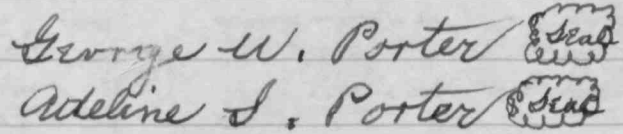 George W. Porter Seal
Adeline S. Porter Seal